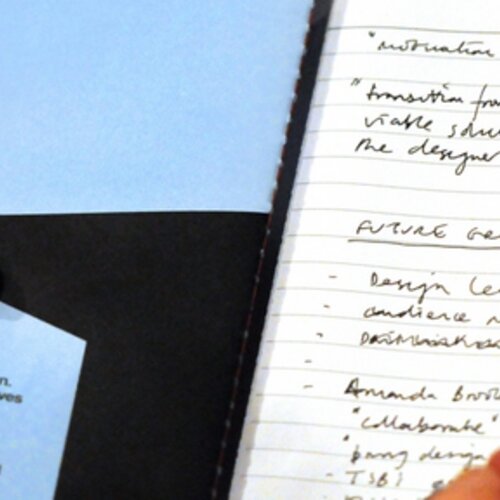 n.
ves
"motivation
"transition from
viable solu
the designer
FUTURE GR
- Design Le
- audience
-
- Amanda Broo
"collaborate"
"bring design
- TSB